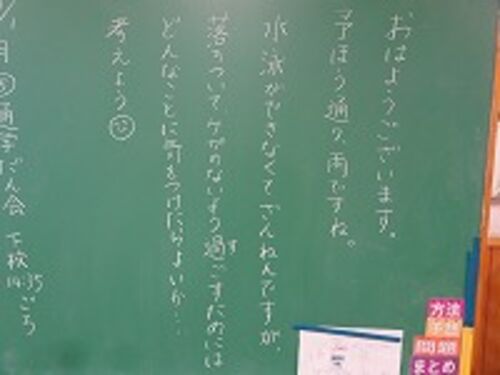 おはようございます。
予ほう通り、雨ですね。
水泳ができなくてざんねんですが、
落ちついてケガのないよう過ごすためには
す
どんなことに気をつけたらよいか…
考えよう
/1
月
通学だん会 下校
14:35ごろ
方法
予想
問題
まとめ